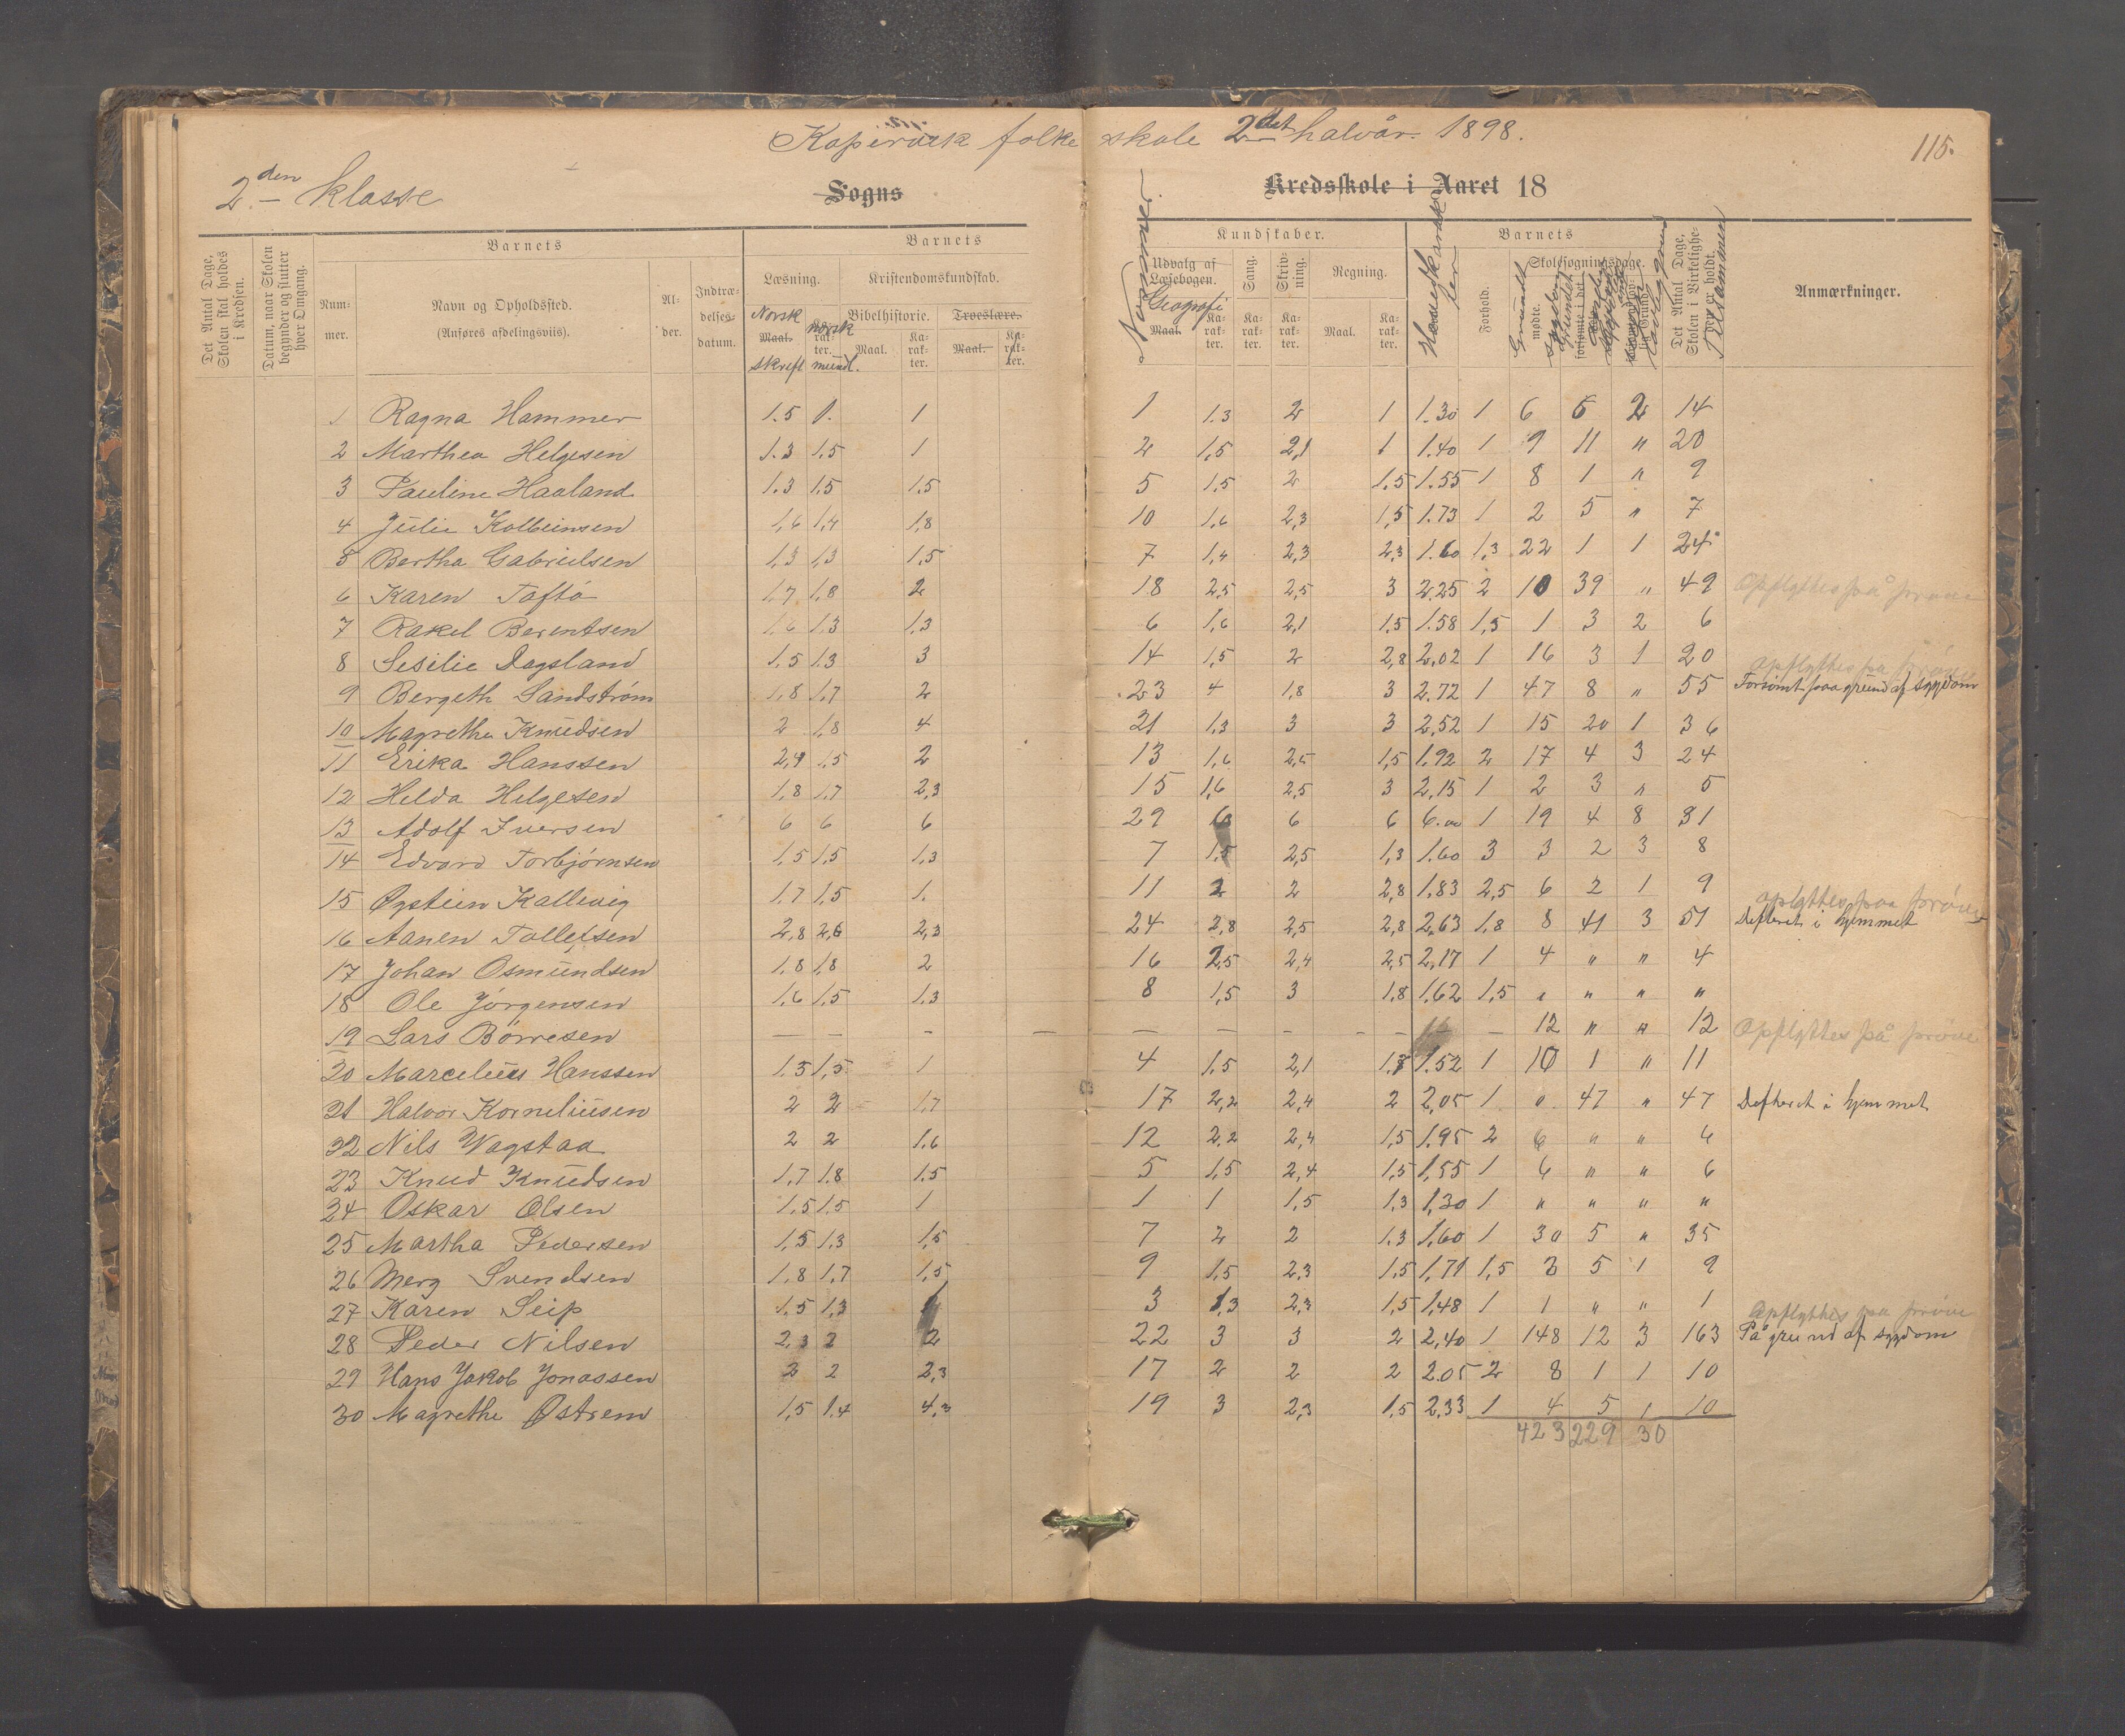 Kopervik folke skole 2det halvår 1898.
115.
2den klasse
Sogns
Kredsskole i Aaret 18
Det Antal Dage, Skolen skal holdes i Kredsen.
Datum, naar Skolen begynder og slutter hver Omgang.
Barnets
Num-mer.
Navn og Opholdssted.
(Anføres afdelingsviis).
Al-der.
Indtræ-delses-datum.
Barnets
Læsning.
Kristendomskundskab.
Bibelhistorie.
Troeslære.
Norsk skrift
Maal.
norsk mündl.
Ka-rak-ter.
Maal.
Ka-rak-ter.
Maal.
Ka-rak-ter.
Nummer.
Kundskaber.
Udvalg af Læsebogen.
Geografi
Maal.
Ka-rak-ter.
Sang.
Ka-rak-ter.
Skriv-ning.
Ka-rak-ter.
Regning.
Maal.
Ka-rak-ter.
Hovedkarakter
Barnets
Forhold.
Skolesøgningsdage.
mødte.
forsømte i det
Det Antal Dage, Skolen i Virkelighe-den er holdt.
Tilsammen
Anmærkninger.
1 Ragna Hammer 1.5 1. 1 1 1.3 2 1 1.30 1 6 6 2 14
2 Marthea Helgesen 1.3 1.5 1 2 1,5 2,1 1 1.40 1 9 11 " 20
3 Pauline Haaland 1.3 1.5 1.5 5 1,5 2 1,5 1.55 1 8 1 " 9
4 Julie Kolbeinsen 1,6 1,4 1,8 10 1,6 2,3 1,5 1.73 1 2 5 " 7
5 Bertha Gabrielsen 1,3 1,3 1,5 7 1,4 2,3 2,3 1.60 1,3 22 1 1 24
6 Karen Toftø 1,7 1,8 2 18 2,5 2,5 3 2,25 2 10 39 " 49 Opflyttes på prøve
7 Rakel Berentsen 1,6 1,3 1,3 6 1,6 2,1 1,5 1.58 1,5 1 3 2 6
8 Sesilie Dagsland 1,5 1,3 3 14 1,5 2 2,8 2,02 1 16 3 1 20
Opflyttes paa prøve
9 Bergeth Sandstrøm 1,8 1,7 2 23 4 1,8 3 2.72 1 47 8 " 55 Forsømt paa grund af sygdom
10 Magrethe Knudsen 2 1,8 4 21 1,3 3 3 2,52 1 15 20 1 36
11 Erika Hanssen 2,4 1,5 2 13 1,6 2,5 1,5 1.92 2 17 4 3 24
12 Helda Helgesen 1,8 1,7 2,3 15 1,6 2,5 3 2,15 1 2 3 " 5
13 Adolf Iversen 6 6 6 29 6 6 6 6.00 1 19 4 8 31
14 Edvard Torbjørnsen 1,5 1,5 1,3 7 1,5 2,5 1,3 1.60 3 3 2 3 8
15 Øystein Kallevig 1.7 1,5 1. 11 2 2 2,8 1,83 2,5 6 2 1 9
Opflyttes paa prøve
16 Aanen Tollefsen 2,8 2,6 2,3 24 2,8 2,5 2,8 2,63 1,8 8 41 3 51 Defteret i hjemmet
17 Johan Osmundsen 1,8 1,8 2 16 2,5 2,4 2,5 2,17 1 4 " " 4
18 Ole Jørgensen 1,6 1,5 1,3 8 1,5 3 1,8 1.62 1,5 " " " "
19 Lars Børresen — — — — — — — — — 12 " " 12 Opflyttes på prøve
20 Marcelius Hanssen 1.5 1,5 1 4 1.5 2,1 1,3 1.52 1 10 1 " 11
21 Halvor Korneliusen 2 2 1,7 17 2,2 2,4 2 2,05 1 0 47 " 47 Defteret i hjemmet
22 Nils Vagstaa 2 2 1.6 12 2,2 2,4 1,5 1.95 2 6 " " 6
23 Knud Knudsen 1,7 1.8 1.5 5 1,5 2,4 1,5 1,55 1 6 " " 6
24 Oskar Olsen 1.5 1.5 1 1 1 1,5 1,3 1,30 1 " " " "
25 Martha Pedersen 1,5 1.3 1,5 7 2 2 1.3 1,60 1 30 5 " 35
26 Merg Svendsen 1.8 1,7 1,5 9 1,5 2,3 1,5 1,71 1,5 3 5 1 9
27 Karen Seip 1.5 1,3 3 1,3 2,3 1,5 1,48 1 1 " " 1
Opflyttes paa prøve
28 Peder Nilsen 2,3 2 2 22 3 3 2 2,40 1 148 12 3 163 På grund af sygdom
29 Hans Jakob Jonassen 2 2 2,3 17 2 2 2 2.05 2 8 1 1 10
30 Magrethe Østrem 1,5 1.4 4,3 19 3 2,3 1,5 2,33 1 4 5 1 10
423 229 30